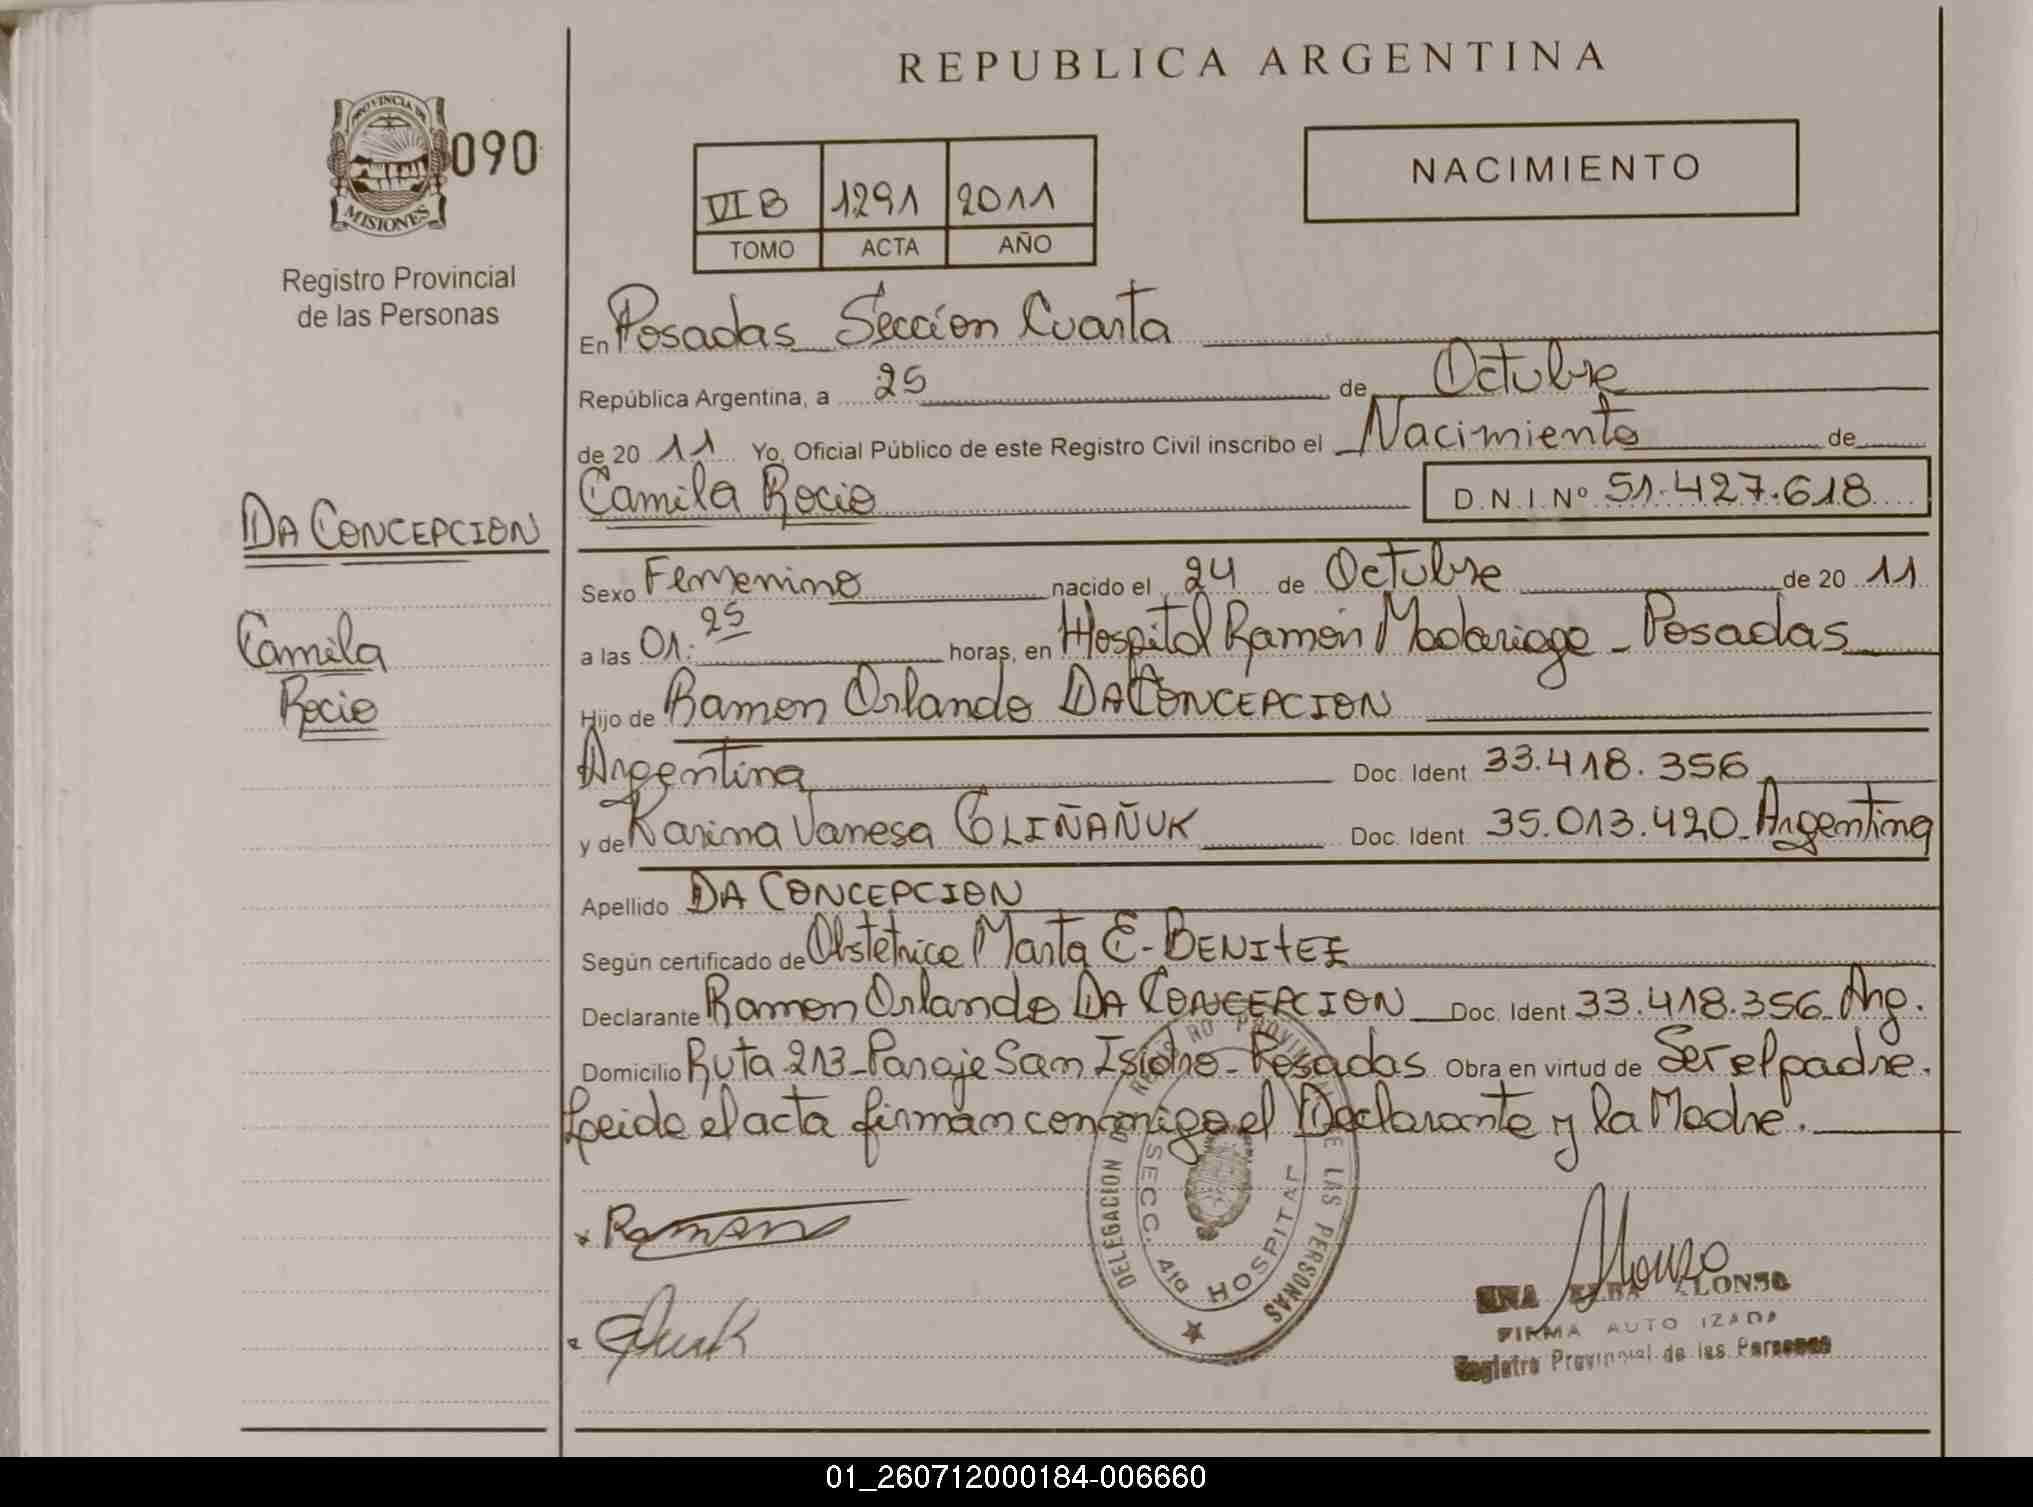 REPUBLICA ARGENTINA
PROVINCIA DE
MISIONES
090
Registro Provincial
de las Personas
VI B 1291 2011
TOMO ACTA AÑO
NACIMIENTO
En Posadas Sección Cuarta
República Argentina, a 25 de Octubre
de 20 11 Yo, Oficial Público de este Registro Civil inscribo el Nacimiento de
Camila Rocio D.N.I. Nº 51.427.618
DA CONCEPCION
Camila
Rocio
Sexo Femenino nacido el 24 de Octubre de 20 11
a las 01:25 horas, en Hospital Ramón Madariaga - Posadas
Hijo de Ramon Orlando DA CONCEPCION
Argentina Doc. Ident 33.418.356
y de Karina Vanesa GLIÑAÑUK Doc. Ident 35.013.420 Argentina
Apellido DA CONCEPCION
Según certificado de Obstetrice Marta E. BENITEZ
Declarante Ramon Orlando DA CONCEPCION Doc. Ident 33.418.356 Arg.
Domicilio Ruta 213 - Paraje San Isidro - Posadas Obra en virtud de Ser el padre.
Leido el acta firman conmigo el Declarante y la Madre.
DELEGACION DEL REGISTRO PROVINCIAL DE LAS PERSONAS
SECC. 4ta HOSPITAL
Ramon
Alonso
ALONSO
FIRMA AUTORIZADA
Registro Provincial de las Personas
01_260712000184-006660